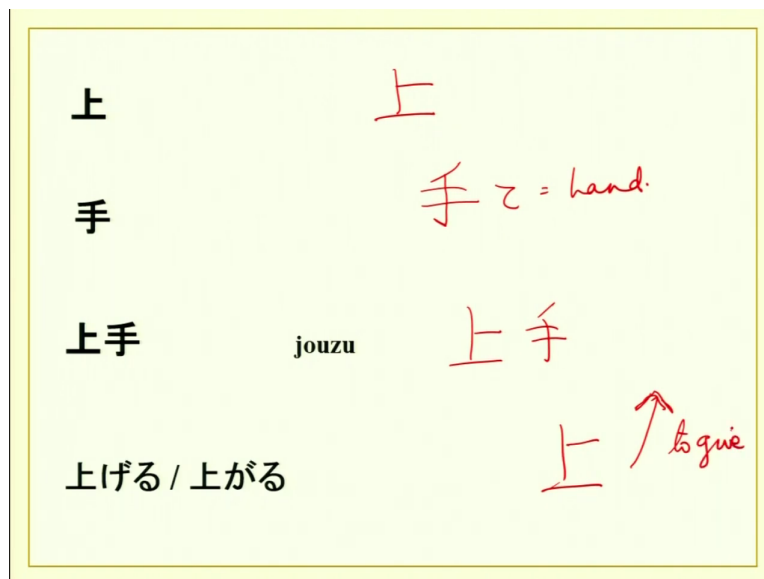 上 上
手 手 て = hand.
上手 jouzu 上手
上げる / 上がる 上 to give